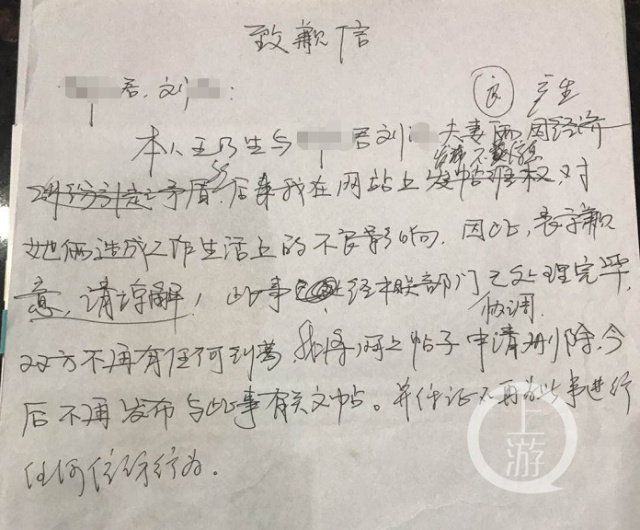 致歉信
君、刘：
良 产生
本人王乃生与 君刘 夫妻俩因经济
矛盾，后来我在网站上发帖维权，对
她俩造成工作生活上的不良影响，因此，表示歉
意，请谅解！此事 经 联部门已处理完毕，
协调
双方不再有任何 我将网上帖子申请删除，今
后不再发布与此事有关文帖。并保证不再为此事进行
任何 行为。
上游